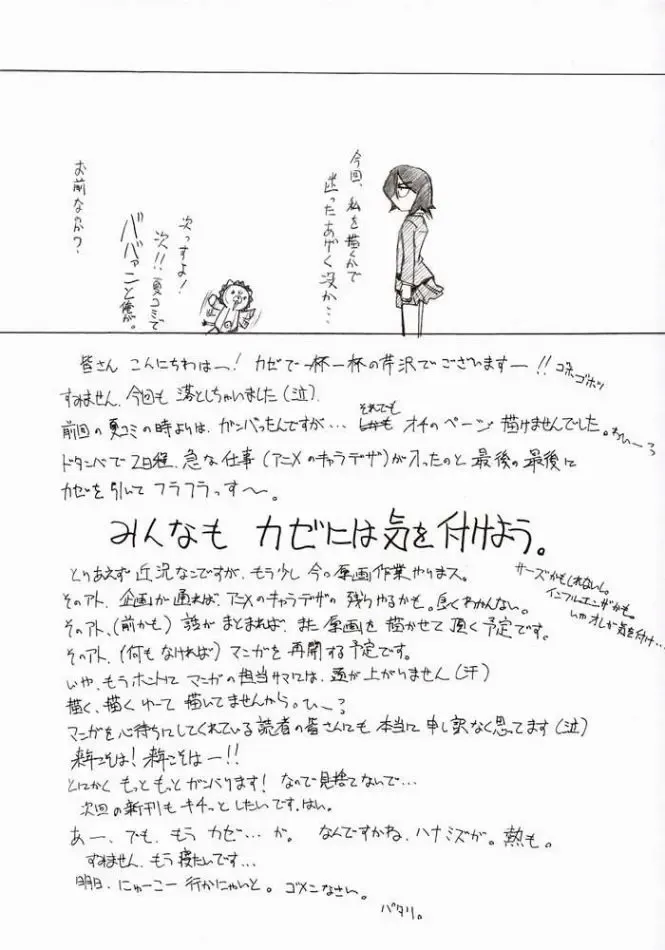 今回、私を描くかで
迷ったあげく没か…
次っすよ!
次!!夏コミで
ババァニと俺が。
お前なのか?
皆さん こんにちわはー! カゼで一杯一杯の芹沢でございますー!! ゴホゴホッ
すみません、今回も落としちゃいました(泣)
前回の夏コミの時よりは、ガンバったんですが… それでも オチのページ 描けませんでした。わひーっ
ドタンバで2日程、急な仕事(アニメのキャラデザ)が入ったのと最後の最後に
カゼを引いて フラフラっす〜。
みんなも カゼには気を付けよう。
サーズかもしれないし。
インフルエンザかも。
いやオレが気を付け…
とりあえず近況なこですが、もう少し今の原画作業やりまス。
そのアト、企画が通れば、アニメのキャラデザの残りやるかも。良くわかんない。
そのアト、(前かも)話がまとまれば、また原画を描かせて頂く予定です。
そのアト、(何もなければ)マンガを再開する予定です。
いや、もうホントにマンガの担当サマには、頭が上がりません(汗)
描く、描くゆーて描いてませんから。ひーっ
マンガを心待ちにしてくれている読者の皆さんにも本当に申し訳なく思ってます(泣)
来年こそは!来年こそはー!!
とにかく もっともっとガンバります!なので見捨てないで…
次回の新刊もキチッとしたいです、はい。
あー、でも、もう カゼ…が。なんですかね、ハナミズが。熱も。
すみません、もう寝たいです…
明日、にゅーこー行かにゃいと。ゴメンなさい。
パタリ。